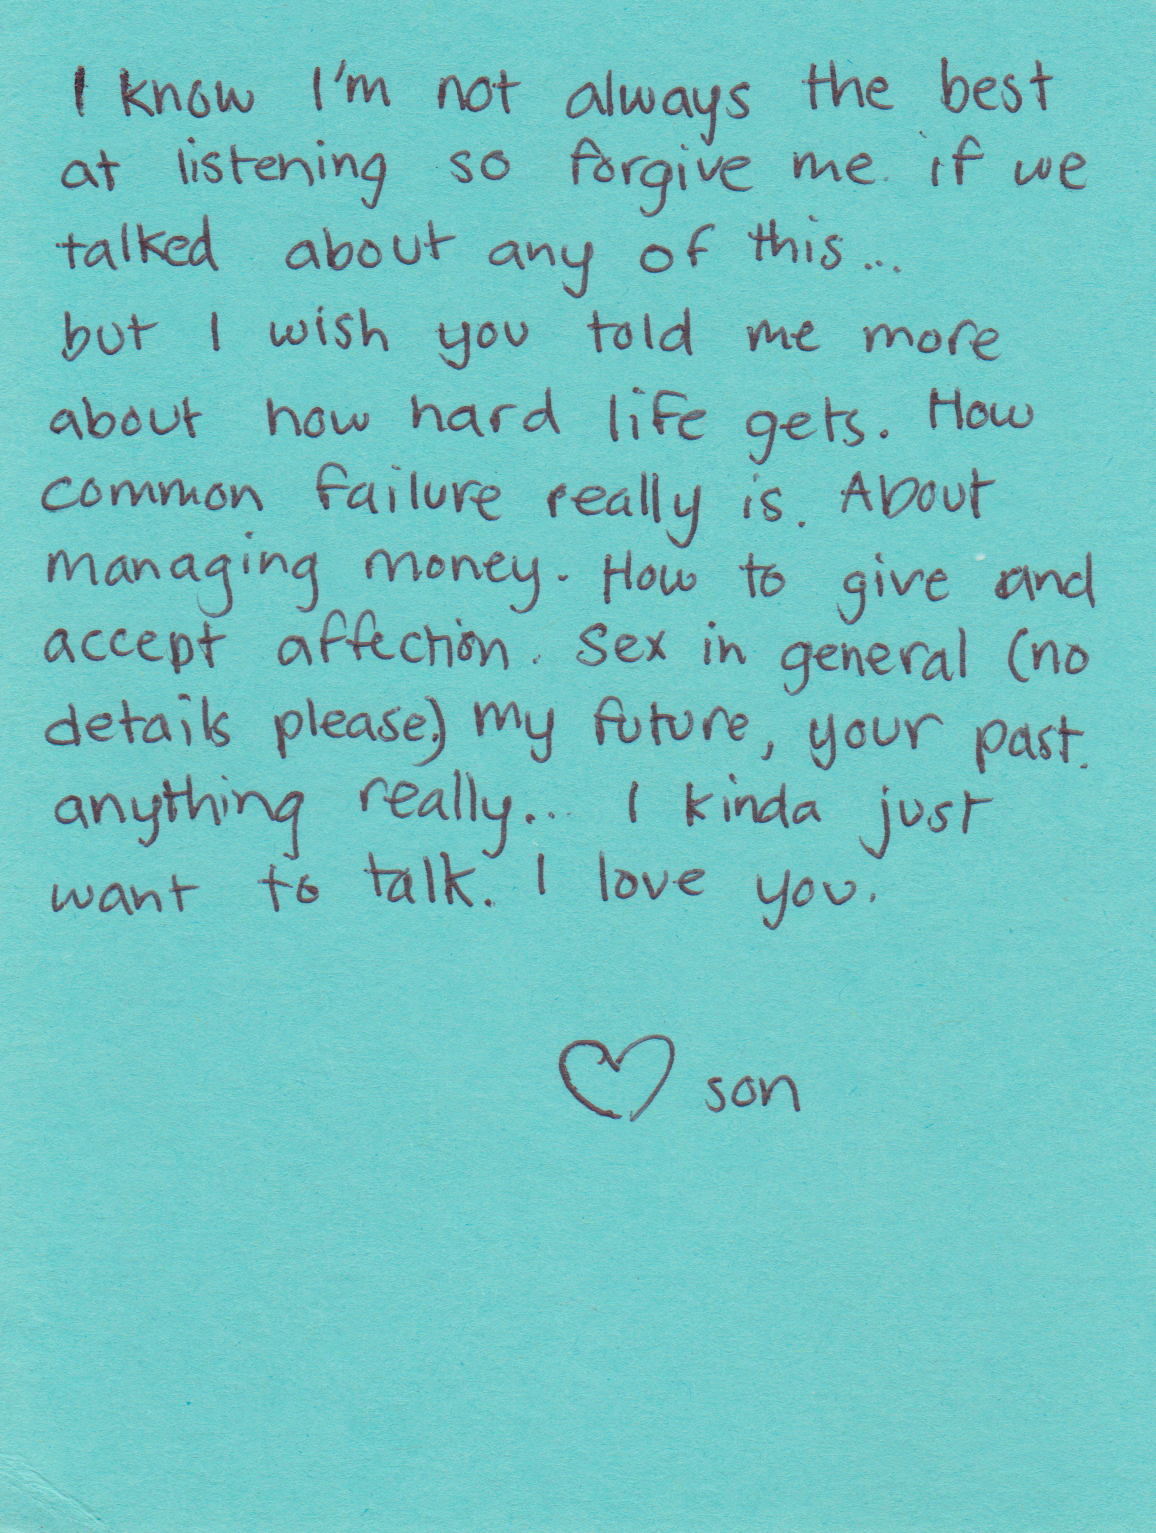 I know I'm not always the best
at listening so forgive me if we
talked about any of this...
but I wish you told me more
about how hard life gets. How
common failure really is. About
managing money. How to give and
accept affection. Sex in general (no
details please) my future, your past.
anything really... I kinda just
want to talk. I love you.
son